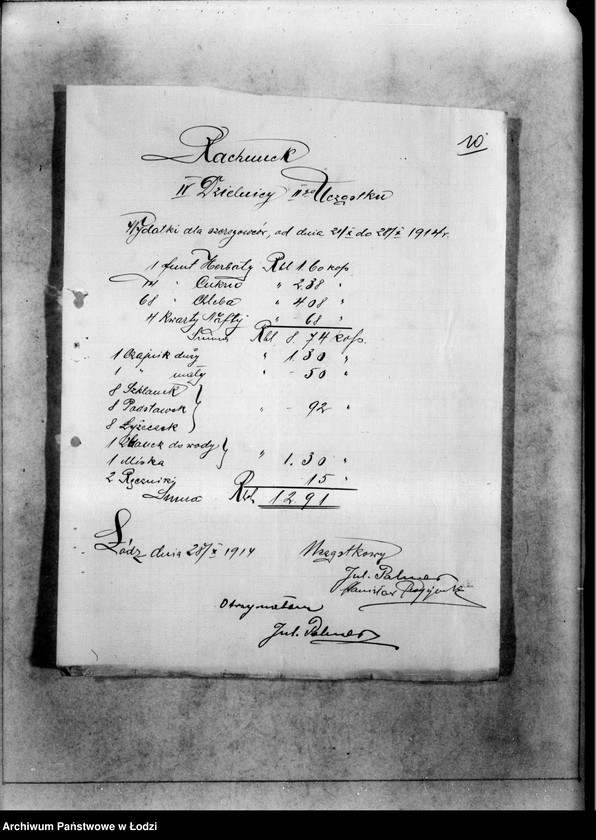 10
Rachunek
IV Dzielnicy II go Uczęstku
Wydatki dla szeregowców, od dnia 21/X do 28/X 1914 r.
1 funt Herbaty Rbl 1.60 kop
14 " Cukru " 2 38 "
68 " Chleba " 4 08 "
4 Kwarty Nafty " - 68 "
Suma Rbl 8. 74 kop.
1 Czajnik duży " 1.30 "
1 " mały " - 50 "
8 Szklanek
8 Podstawek " - 92 "
8 Łyżeczek
1 Dzbanek do wody
1 Miska " 1. 30 "
2 Ręczniki 15 "
Suma Rbl. 12.91
Łódź dnia 28/X 1914
Uczęstkowy
Jul. Palmer
Stanisław
Otrzymałem
Jul. Palmer
Archiwum Państwowe w Łodzi